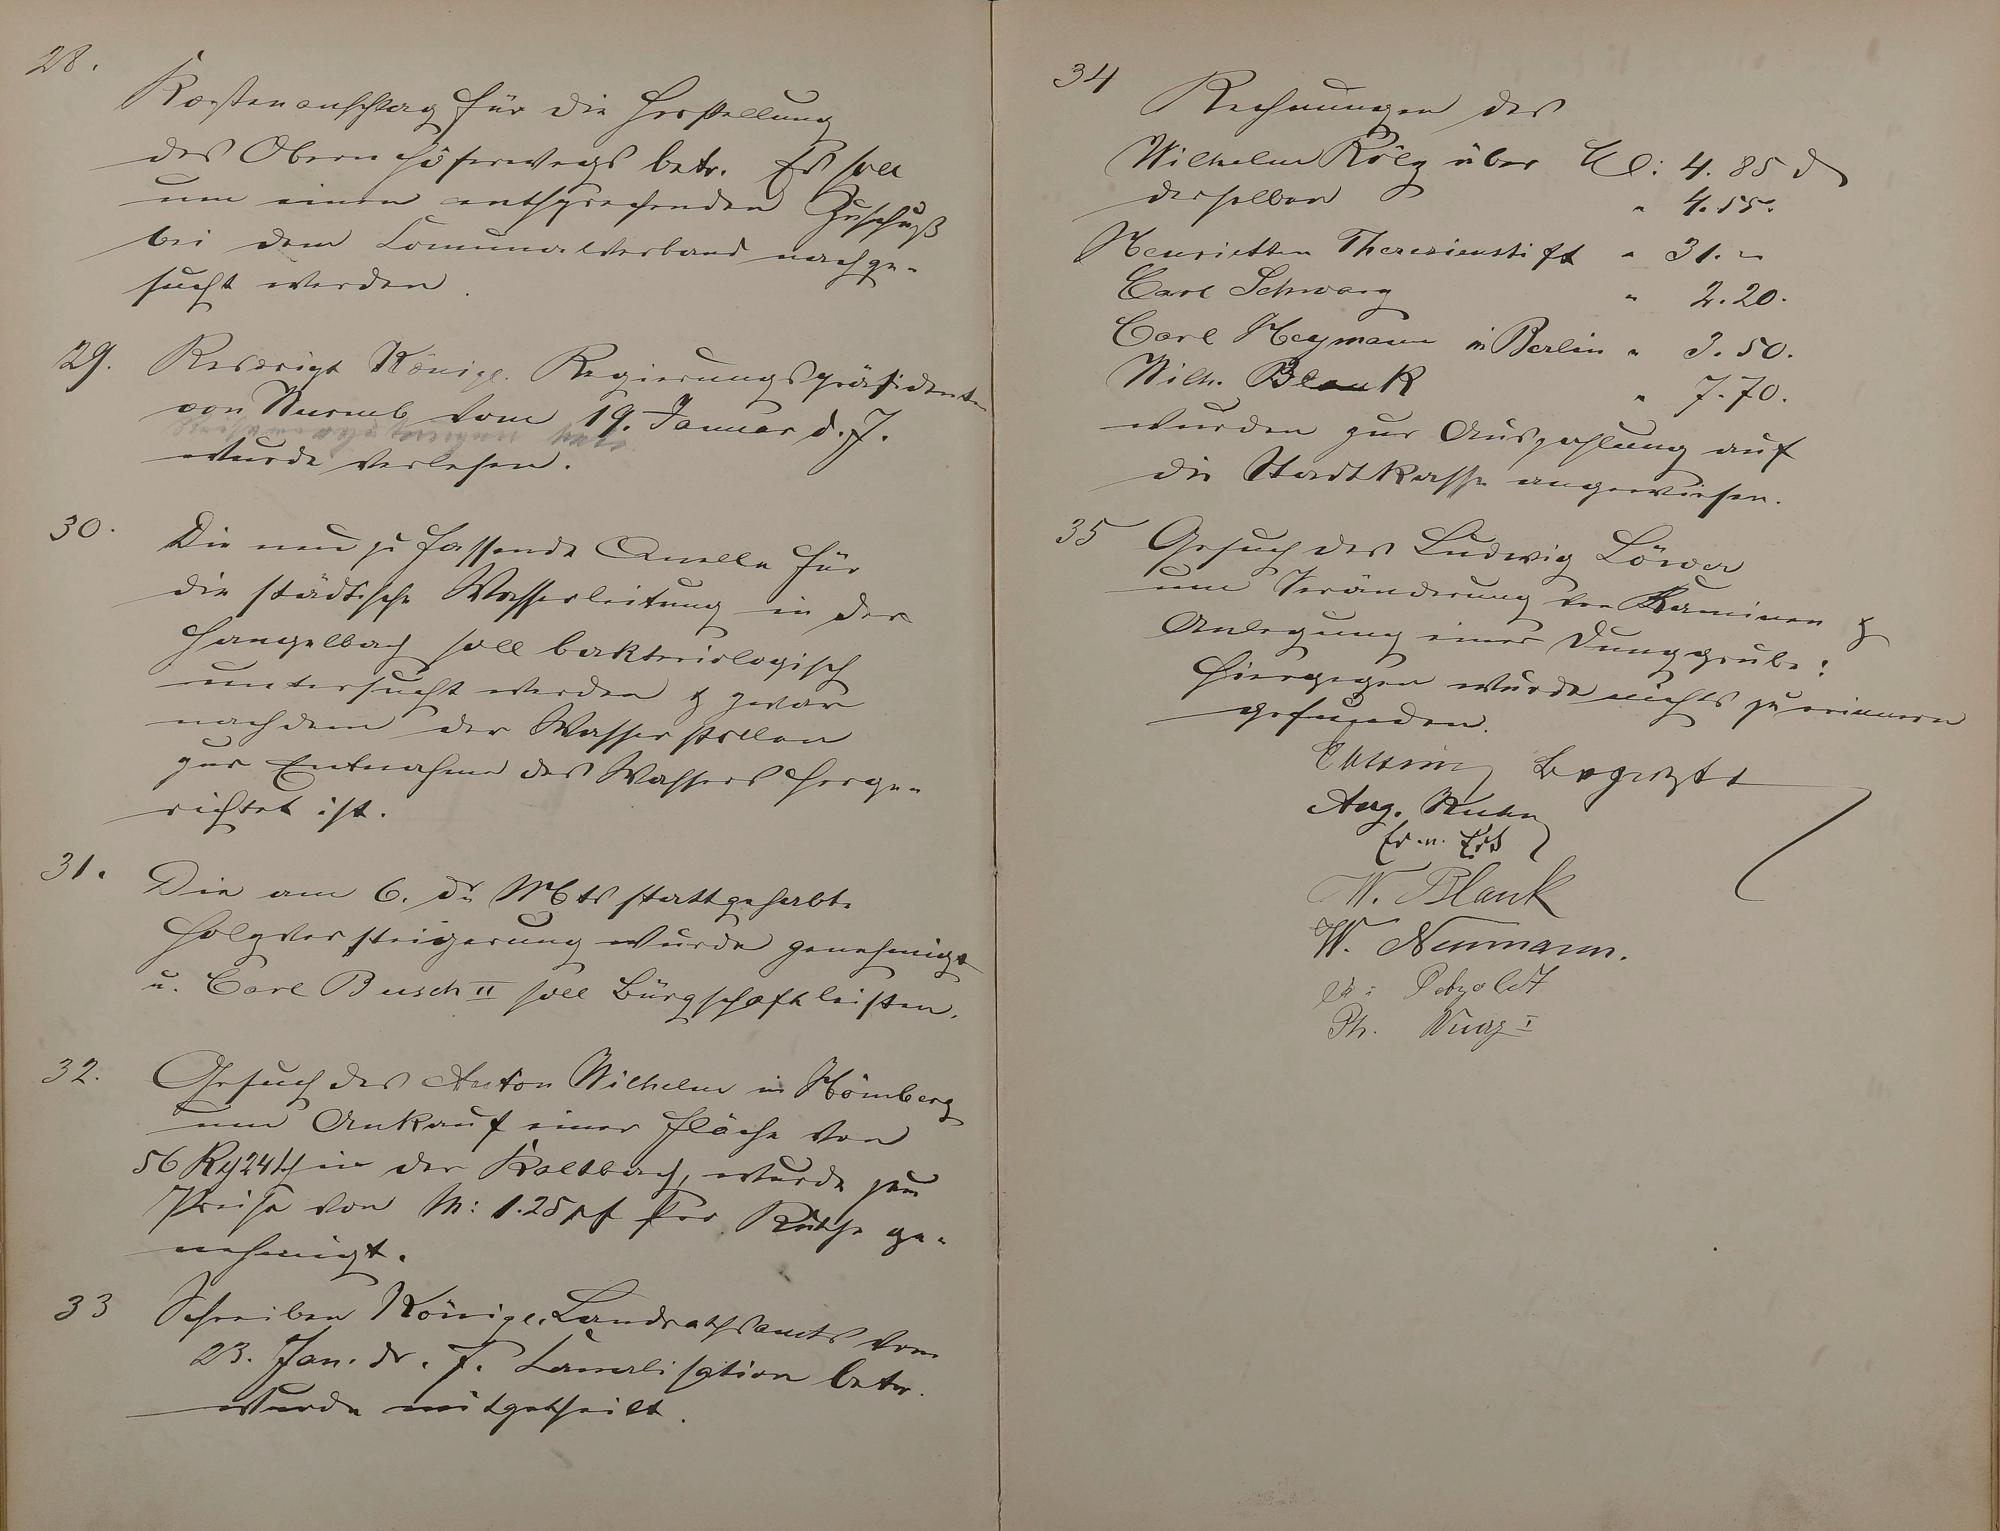 28.
Kostenanschlag für die Herstellung
des Obernhöferwegs betr. Es soll
um einen entsprechenden Zuschuß
bei dem Comunalverband nachge-
sucht werden.
29. Rescript Königl. Regierungspräsidenten
von vom 19. Januar d. J.
wurde verlesen.
30. Die neu zu fassende Quelle für
die städtische Wasserleitung in der
Hangelbach soll bakteriologisch
untersucht werden & zwar
nachdem der Wasserstollen
zur Entnahme des Wassers herge-
richtet ist.
31. Die am 6. ds Mts stattgehabte
Holzversteigerung wurde genehmigt
u. Carl Busch II soll Bürgschaft leisten.
32. Gesuch des Anton Wilhelm in Hömberg
um Ankauf einer Fläche von
56 in der Kaltbach, wurde zum
Preise von M: 1.25 pf per Ruthe ge-
nehmigt.
33 Schreiben Königl. Landrathsamts vom
23. Jan. ds. J. Canalisation betr.
wurde mitgetheilt.
34
Rechnungen des
Wilhelm über M: 4. 85 d
desselben " 4.55.
Henrietten Theresienstift " 31. -
Carl Schwarz " 2.20.
Carl Heymann in Berlin " 3.50.
Wilh. Blank " 7.70.
wurden zur Auszahlung auf
die Stadtkasse angewiesen.
35 Gesuch des Ludwig Löwer
um Veränderung von Kaminen &
Anlegung einer Dunggrube:
Hiergegen wurde nichts zu erinnern
gefunden.
Aug. Kuhn
W. Blank
W. Neumann.
Petzoldt
Ph. I